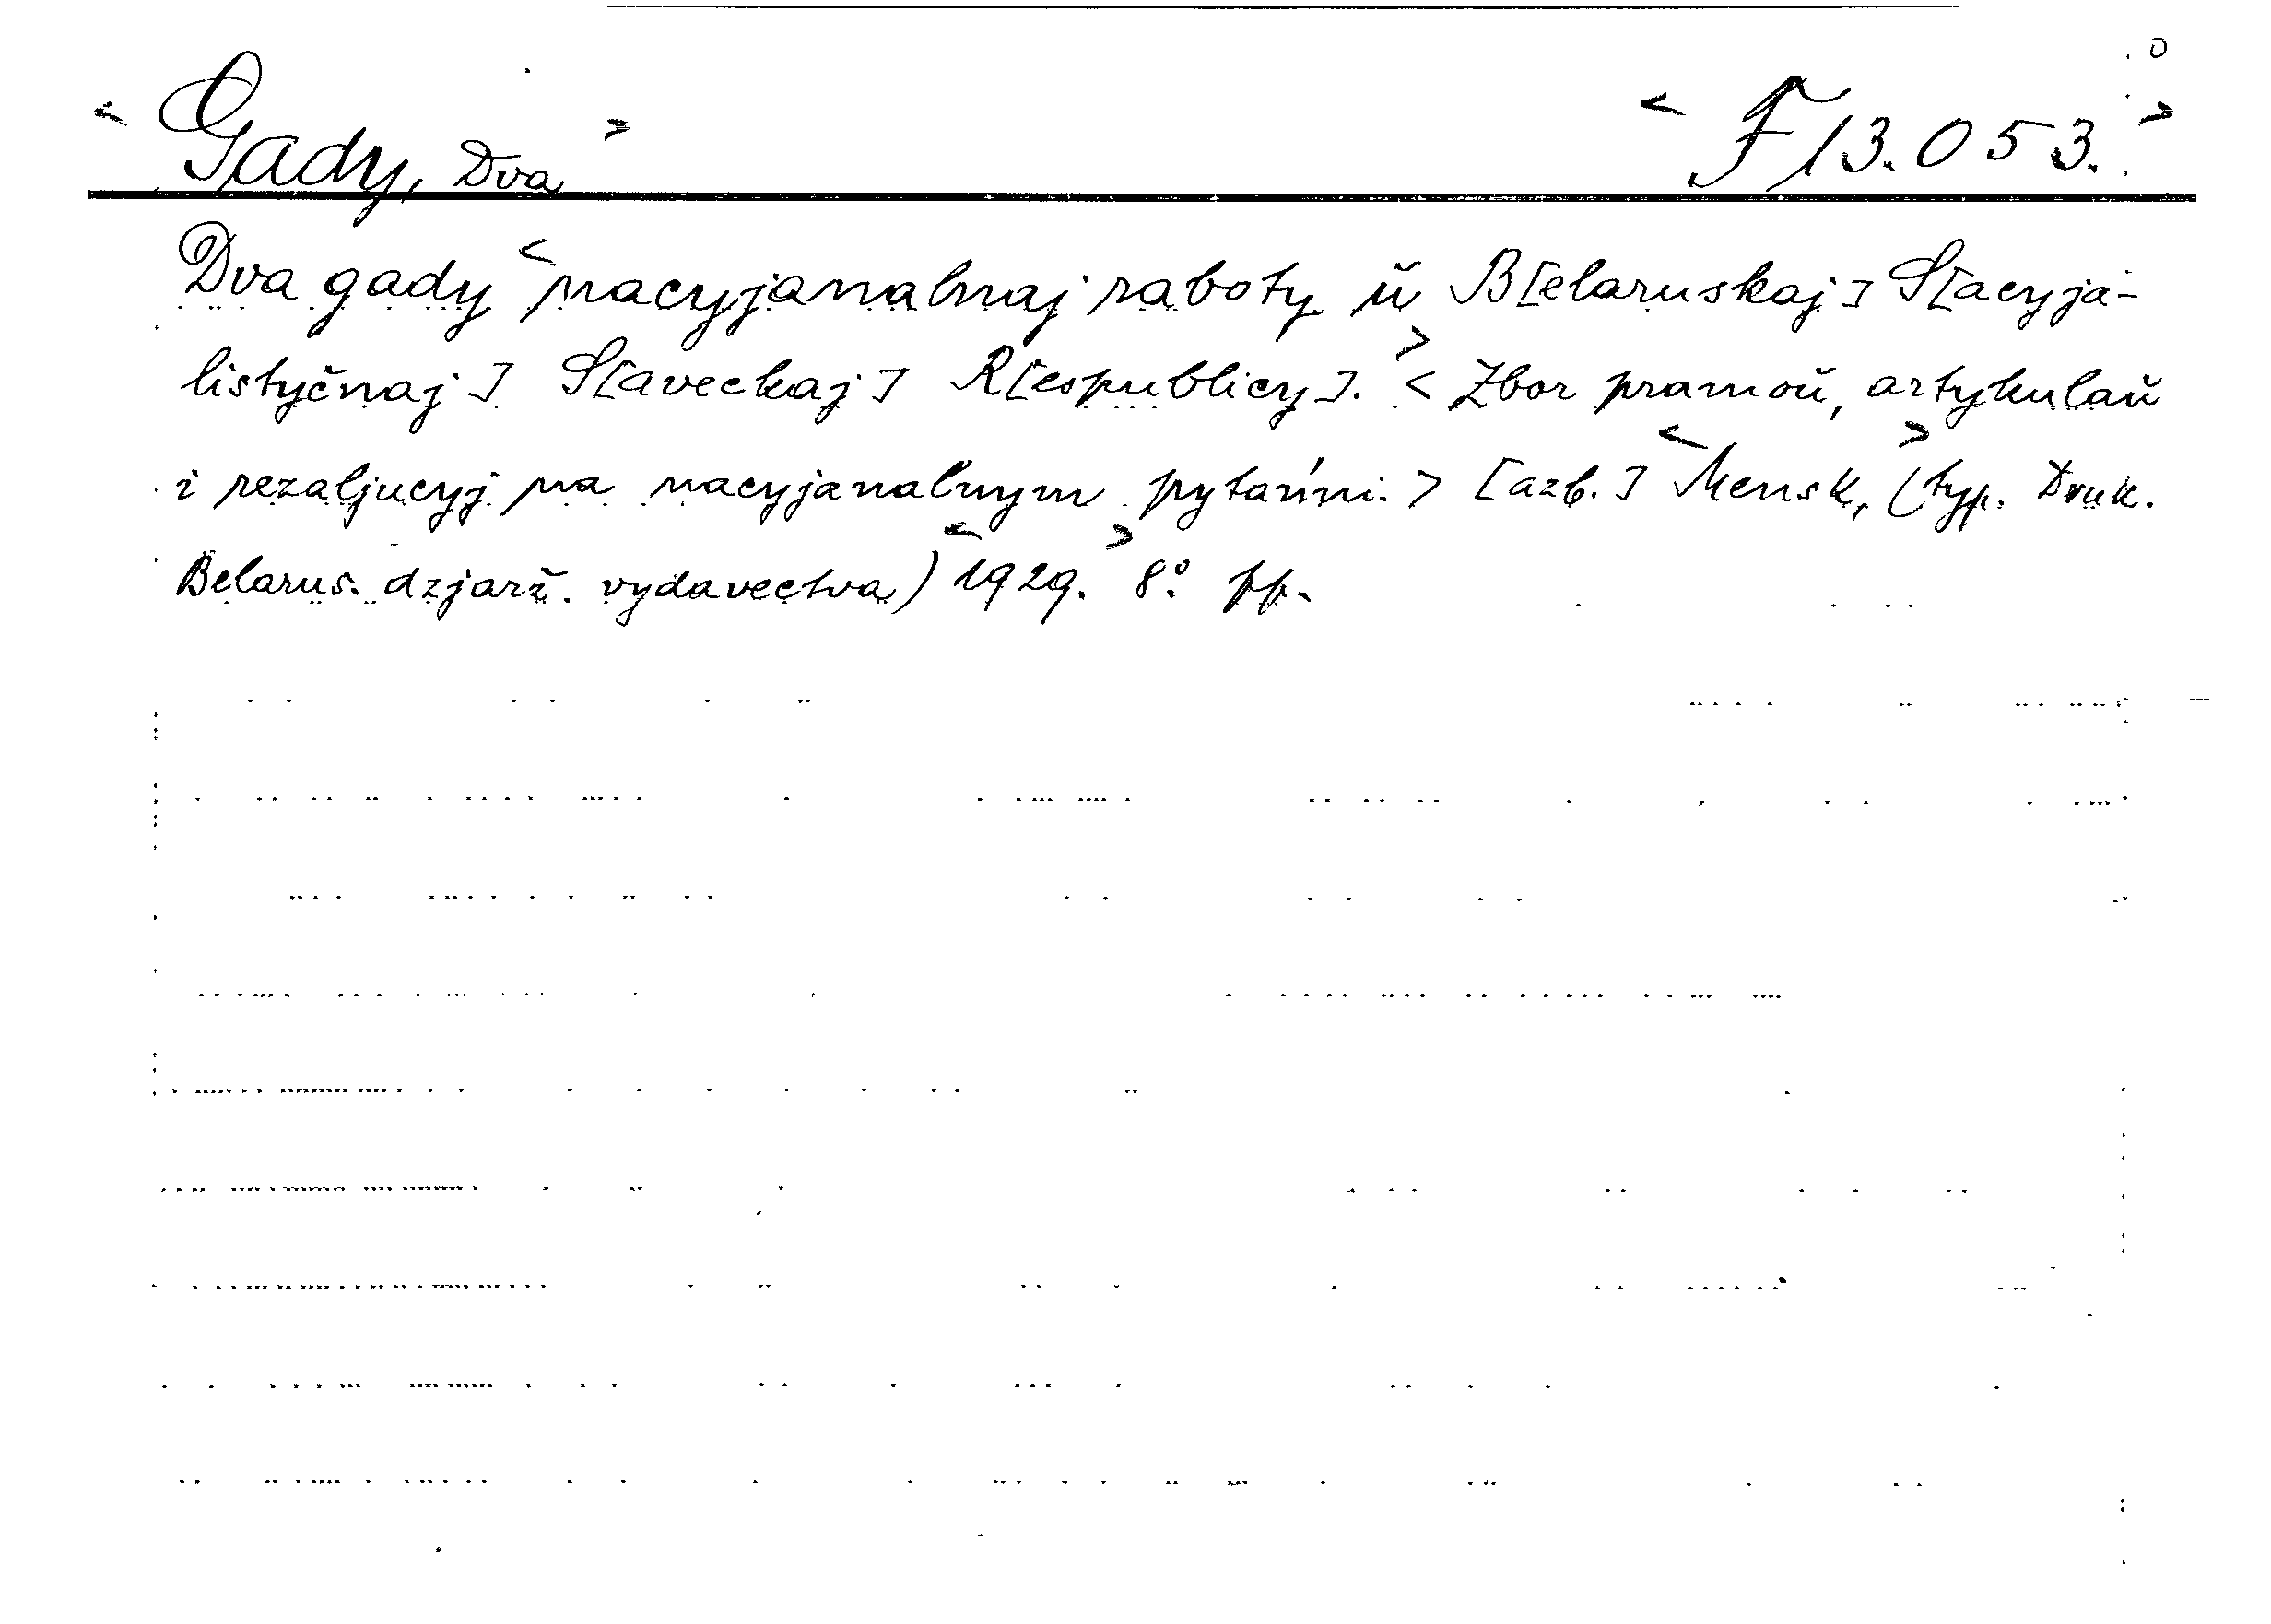 < Gady, Dva > < F 13.053. >
Dva gady < nacyjanalnaj raboty ŭ B[elaruskaj] S[acyja-
listyčnaj] S[aveckaj] R[espublicy]. > < Zbor pramoŭ, artykulaŭ
i rezaljucyj na nacyjanalnym pytańni. > [azb.] < Mensk, > (typ. Druk.
Belarus. dzjarž. vydavectva) < 1929. > 8° pp.